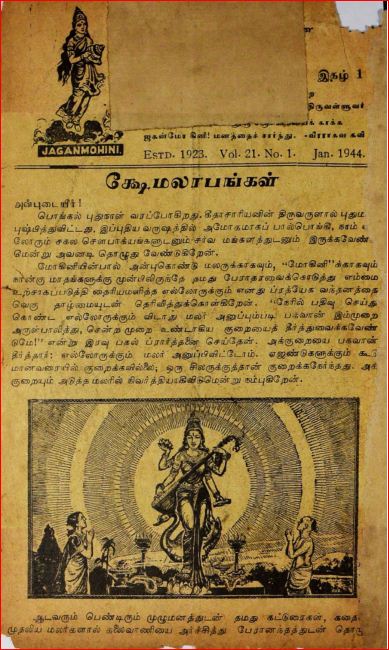 இதழ் 1
திருவள்ளுவர்
காக்க
ஜகன்மோகினி! மனத்தைச் சார்ந்து. -வீரராகவ கவி
JAGANMOHINI.
ESTD. 1923. Vol. 21. No. 1. Jan. 1944.
க்ஷேமலாபங்கள்
அன்புடையீர்!
பொங்கல் புதுநாள் வரப்போகிறது. கீதாசாரியனின் திருவருளால் புதும
புஷ்பித்துவிட்டது, இப்புதிய வருஷத்தில் அமோகமாகப் பால்பொங்கி, நாம் எ
லோரும் சகல சௌபாக்யங்களுடனும் சர்வ மங்களத்துடனும் இருக்கவேண்
மென்று அவனடி தொழுது வேண்டுகிறேன்.
மோகினியின்பால் அன்புகொண்டு மலருக்காகவும், “மோகினி”க்காகவும்
நான்கு மாதங்களுக்கு முன்பிலிருந்தே தமது பேராதரவைக்கொடுத்து எம்மை
உற்சாகப்படுத்தி தைரியமளித்த எல்லோருக்கும் எனது ப்ரத்யேக வந்தனத்தை
வெகு தாழ்மையுடன் தெரிவித்துக்கொள்கிறேன். “நேரில் பதிவு செய்து
கொண்ட எல்லோருக்கும் விடாது மலர் அனுப்பும்படி பகவான் இம்முறை
அருள்பாலித்து, சென்ற முறை உண்டாகிய குறையைத் தீர்த்துவைக்கவேண்
டுமே!” என்று இரவு பகல் ப்ரார்த்தனை செய்தேன். அக்குறையை பகவான்
தீர்த்தார்: எல்லோருக்கும் மலர் அனுப்பிவிட்டோம். ஏஜண்டுகளுக்கும் கூடு
மானவரையில் குறைக்கவில்லை; ஒரு சிலருக்குத்தான் குறைக்கநேர்ந்தது. அக்
குறையும் அடுத்த மலரில் நிவர்த்தியாகிவிடுமென்று நம்புகிறேன்.
ஆடவரும் பெண்டிரும் முழுமனத்துடன் தமது கட்டுரைகள், கதை
முதலிய மலர்களால் கலைவாணியை அர்ச்சித்து பேரானந்தத்துடன் தொரு